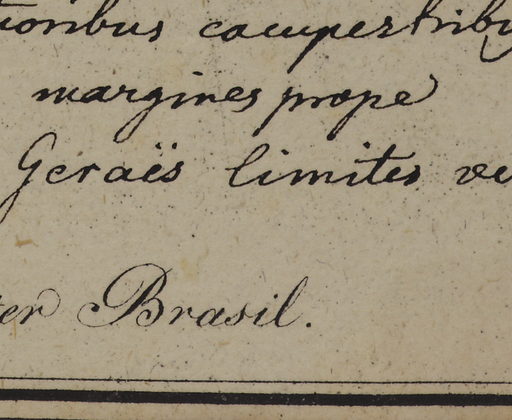 ionibus campestribus
margines prope
Geraës limites ve
ter Brasil.